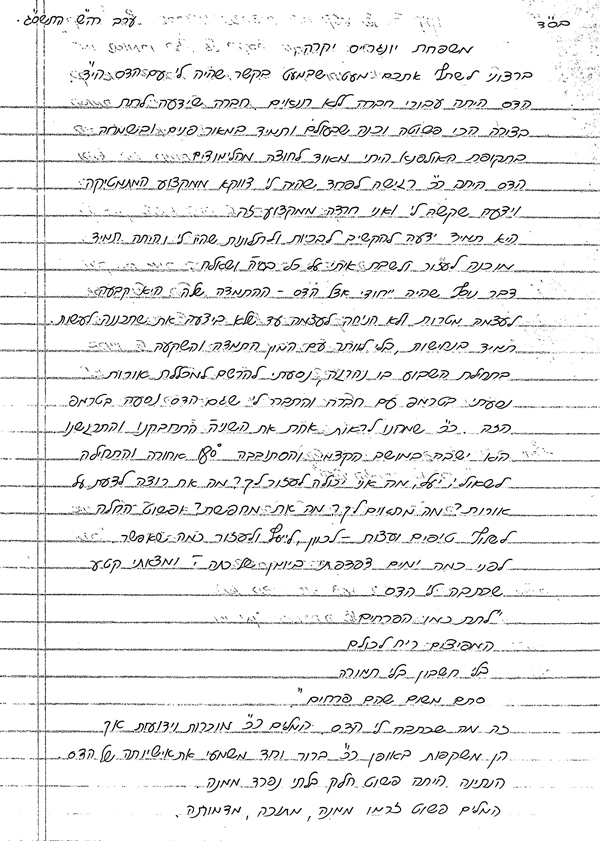 בס"ד
ערב ר"ה התשס"ג.
משפחת יונגרייס יקרה
ברצוני לשתף אתכם מעט שבמעט בקשר שהיה לי עם הדס הי"ד
הדס היתה עבורי חברה ללא תנאים. חברה שידעה לתת
בצורה הכי פשוטה וכנה שבעולם ותמיד במאור פנים ובשמחה
בתקופת האולפנא הייתי מאוד לחוצה מהלימודים
הדס היתה כ"כ רגישה לפחד שהיה לי דווקא ממקצוע המתמטיקה
וידעה שקשה לי ואני חרדה ממקצוע זה
היא תמיד ידעה להקשיב לבכיות ולתלונות שהיו לי והיתה תמיד
מוכנה לעזור ולשבת איתי על כל בעיה ושאלה
דבר נוסף שהיה ייחודי אצל הדס - ההתמדה שלה היא קבעה
לעצמה מטרות ולא הניחה לעצמה עד שלא ביצעה את שתכננה לעשות.
תמיד בנחישות, בלי לוותר עם המון התמדה והשקעה
בתחילת השבוע בו נהרגה, נסעתי להרשם למכללת אורות
נסעתי בטרמפ עם חברה והתברר לי שגם הדס נסעה בטרמפ
הזה. כ"כ שמחנו לראות אחת את השניה התחבקנו והתרגשנו
היא ישבה במושב הקדמי והסתובבה 180° אחורה והתחילה
לשאול: יעל, מה אני יכולה לעזור לך? מה את רוצה לדעת על
אורות? מה מתאים לך? מה את מחפשת? ופשוט החלה
לשלוף טיפים ועצות - לכוון, לייעץ ולעזור כמה שאפשר
לפני כמה ימים דפדפתי ביומן של כתה ומצאתי קטע
שכתבה לי הדס
"לתת כמו הפרחים
המפיצים ריח לכולם
בלי חשבון בלי תמורה
סתם משום שהם פרחים"
זה מה שכתבה לי הדס. המלים כ"כ מוכרות וידועות אך
הן משקפות באופן כ"כ ברור וחד משמעי את אישיותה של הדס
הנתינה היתה פשוט חלק בלתי נפרד ממנה
המלים פשוט זרמו ממנה, מתוכה, מדמותה.